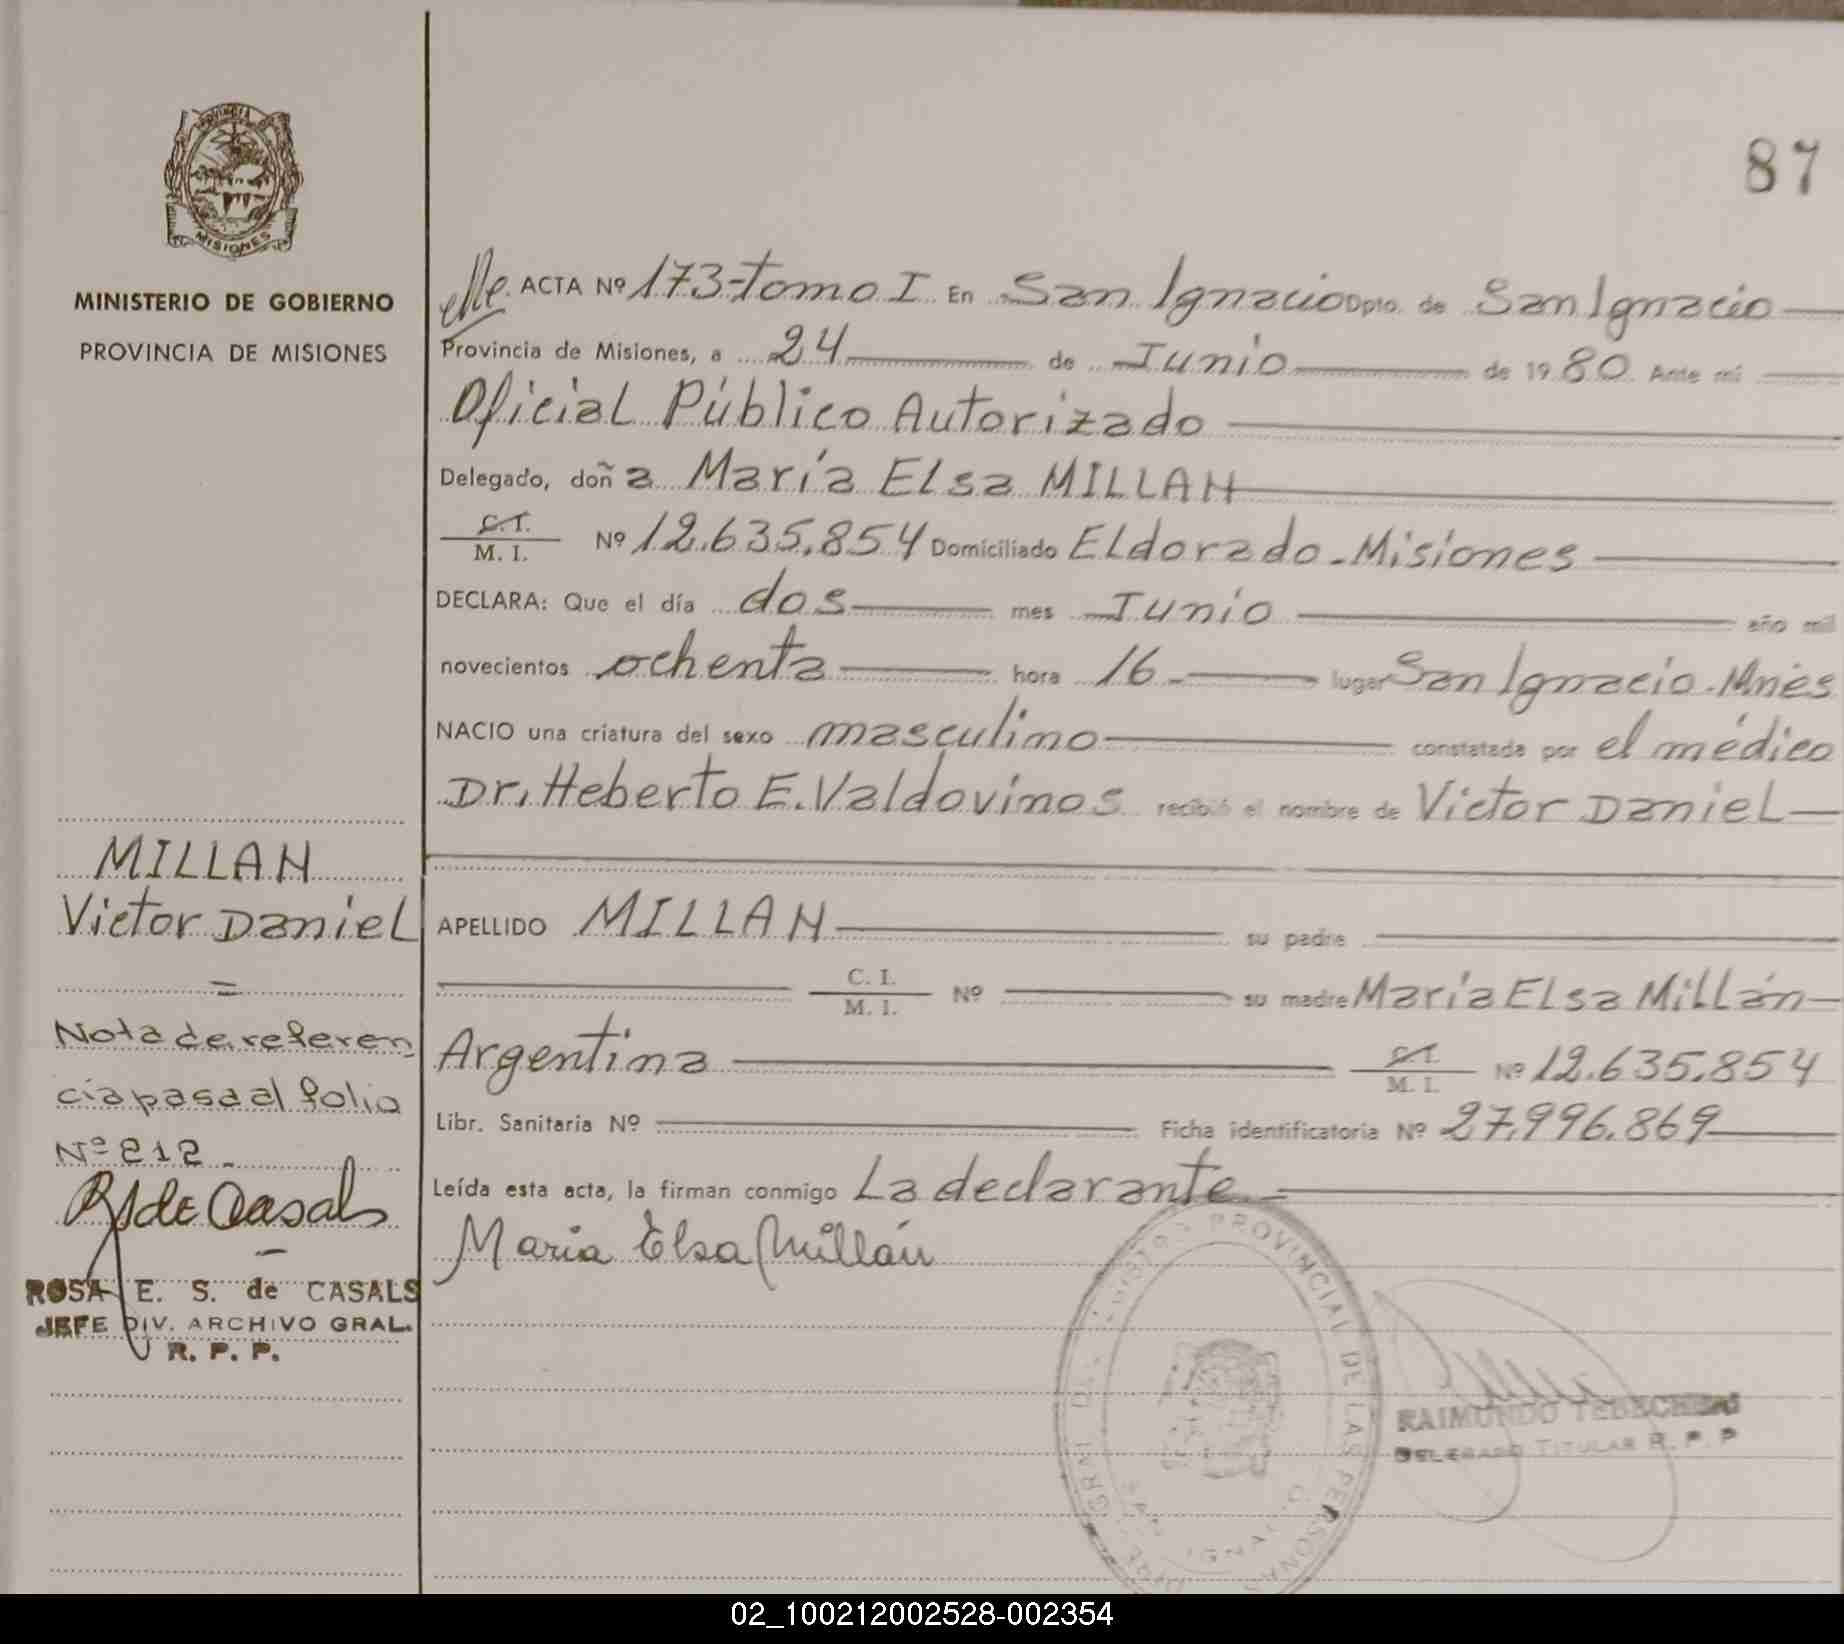 MISIONES
MINISTERIO DE GOBIERNO
PROVINCIA DE MISIONES
87
ACTA Nº 173-tomo I En San Ignacio Dpto. de San Ignacio
Provincia de Misiones, a 24 de Junio de 1980 Ante mí
Oficial Público Autorizado
Delegado, doña María Elsa MILLAN
C.I. M. I. Nº 12.635.854 Domiciliado Eldorado-Misiones
DECLARA: Que el día dos mes Junio año mil
novecientos ochenta hora 16 lugar San Ignacio-Mnes
NACIO una criatura del sexo masculino constatada por el médico
Dr. Heberto E. Valdovinos recibió el nombre de Victor Daniel
APELLIDO MILLAN su padre
C. I. M. I. Nº su madre María Elsa Millán
Argentina C.I. M. I. Nº 12.635.854
Libr. Sanitaria Nº Ficha identificatoria Nº 27.996.869
Leída esta acta, la firman conmigo La declarante
Maria Elsa Millán
MILLAN
Victor Daniel
=
Nota de referen
cia pasa al folio
Nº 212
R S de Casals
ROSA E. S. de CASALS
JEFE DIV. ARCHIVO GRAL.
R. P. P.
PROVINCIAL DE LAS PERSONAS
RAIMUNDO
DELEGADO TITULAR R. P. P
02_100212002528-002354